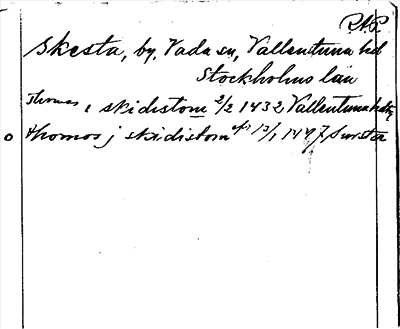 P.N.P.
Skesta, by, Vada sn, Vallentuna hd
Stockholms län
Thomas i skidistom 2/2 1432 Vallentuna
thomos j skidistom 13/1 1497